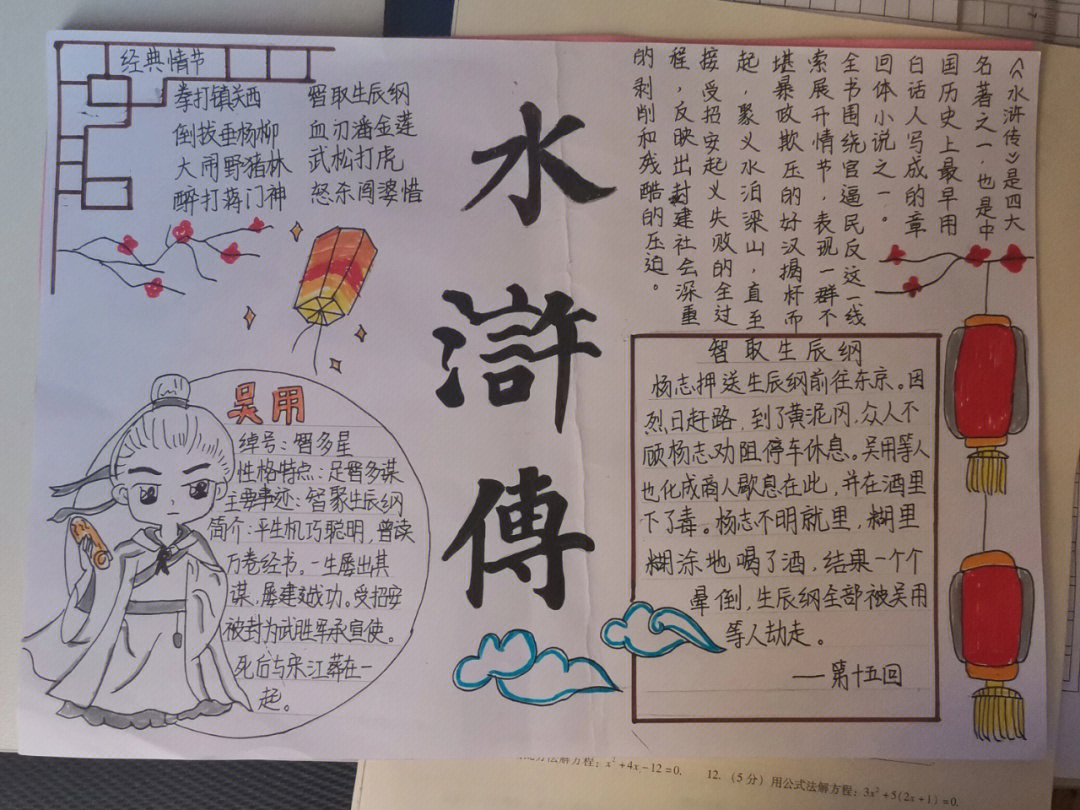 经典情节
拳打镇关西
倒拔垂杨柳
大闹野猪林
醉打蒋门神
智取生辰纲
血刃潘金莲
武松打虎
怒杀阎婆惜
水
滸
傳
《水浒传》是四大
名著之一,也是中
国历史上最早用
白话人写成的章
回体小说之一。
全书围绕官逼民反这一线
索展开情节,表现一群不
堪暴政欺压的好汉揭杆而
起,聚义水泊梁山,直至
接受招安起义失败的全过
程,反映出封建社会深重
的剥削和残酷的压迫。
吴用
绰号:智多星
性格特点:足智多谋
主要事迹:智聚生辰纲
简介:平生机巧聪明,曾读
万卷经书。一生屡出其
谋,屡建战功。受招安
被封为武胜军承宣使。
死后与宋江葬在一
起。
智取生辰纲
杨志押送生辰纲前往东京。因
烈日赶路,到了黄泥冈,众人不
顾杨志劝阻停车休息。吴用等人
也化成商人歇息在此,并在酒里
下了毒。杨志不明就里,糊里
糊涂地喝了酒,结果一个个
晕倒,生辰纲全部被吴用
等人劫走。
——第十五回
方法解方程:x²+4x-12=0.
12.(5分)用公式法解方程:3x²+5(2x+1)=0.